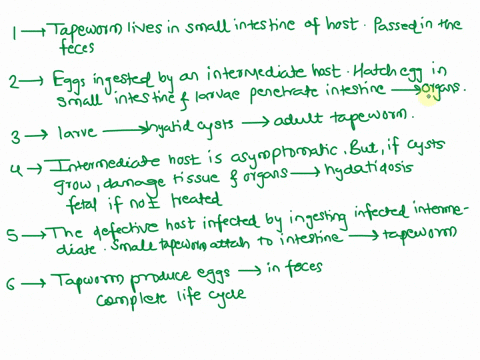 1 → Tapeworm lives in small intestine of host. Passed in the
feces
2 → Eggs ingested by an intermediate host. Hatch egg in
small intestine & larvae penetrate intestine → organs.
3 → larve → hyatid cysts → adult tapeworm.
4 → Intermediate host is asymptomatic. But, if cysts
grow, damage tissue & organs → hydatidosis
fetal if not treated
5 → The defective host infected by ingesting infected interme-
diate. Small tapeworm attah to intestine → tapeworm
6 → Tapworm produce eggs → in feces
Complete life cycle